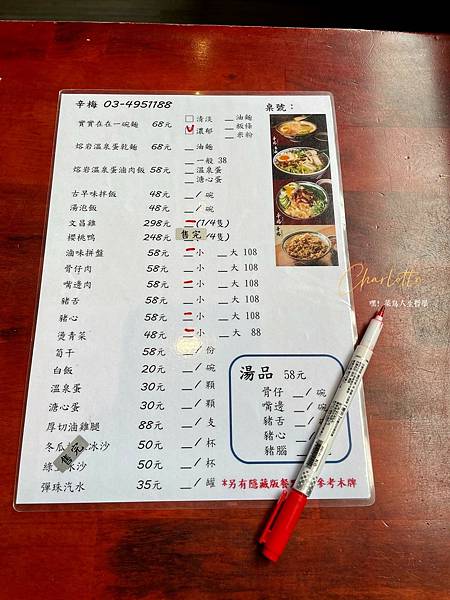 辛梅 03-4951188
桌號：
實實在在一碗麵 68元 □清淡 __油麵
□濃郁 __板條
__米粉
熔岩溫泉蛋乾麵 68元 __油麵
__一般 38
熔岩溫泉蛋滷肉飯 58元 __溫泉蛋
__溏心蛋
古早味拌飯 48元 __/碗
湯泡飯 48元 __/碗
文昌雞 298元 __(1/4隻)
櫻桃鴨 248元 售完 /4隻)
滷味拼盤 58元 __小 __大 108
骨仔肉 58元 __小 __大 108
嘴邊肉 58元 __小 __大 108
豬舌 58元 __小 __大 108
豬心 58元 __小 __大 108
燙青菜 48元 __小 __大 88
筍干 58元 __/份
白飯 20元 __/碗
溫泉蛋 30元 __/顆
溏心蛋 30元 __/顆
厚切滷雞腿 88元 __/支
冬瓜 冰沙 50元 __/杯
售完
綠 冰沙 50元 __/杯
彈珠汽水 35元 __/罐
湯品 58元
骨仔 __/碗
嘴邊 __/碗
豬舌 __/
豬心 __/
豬腦 __/
*另有隱藏版餐 參考木牌
Charlotte
嘿！菜鳥人生哲學